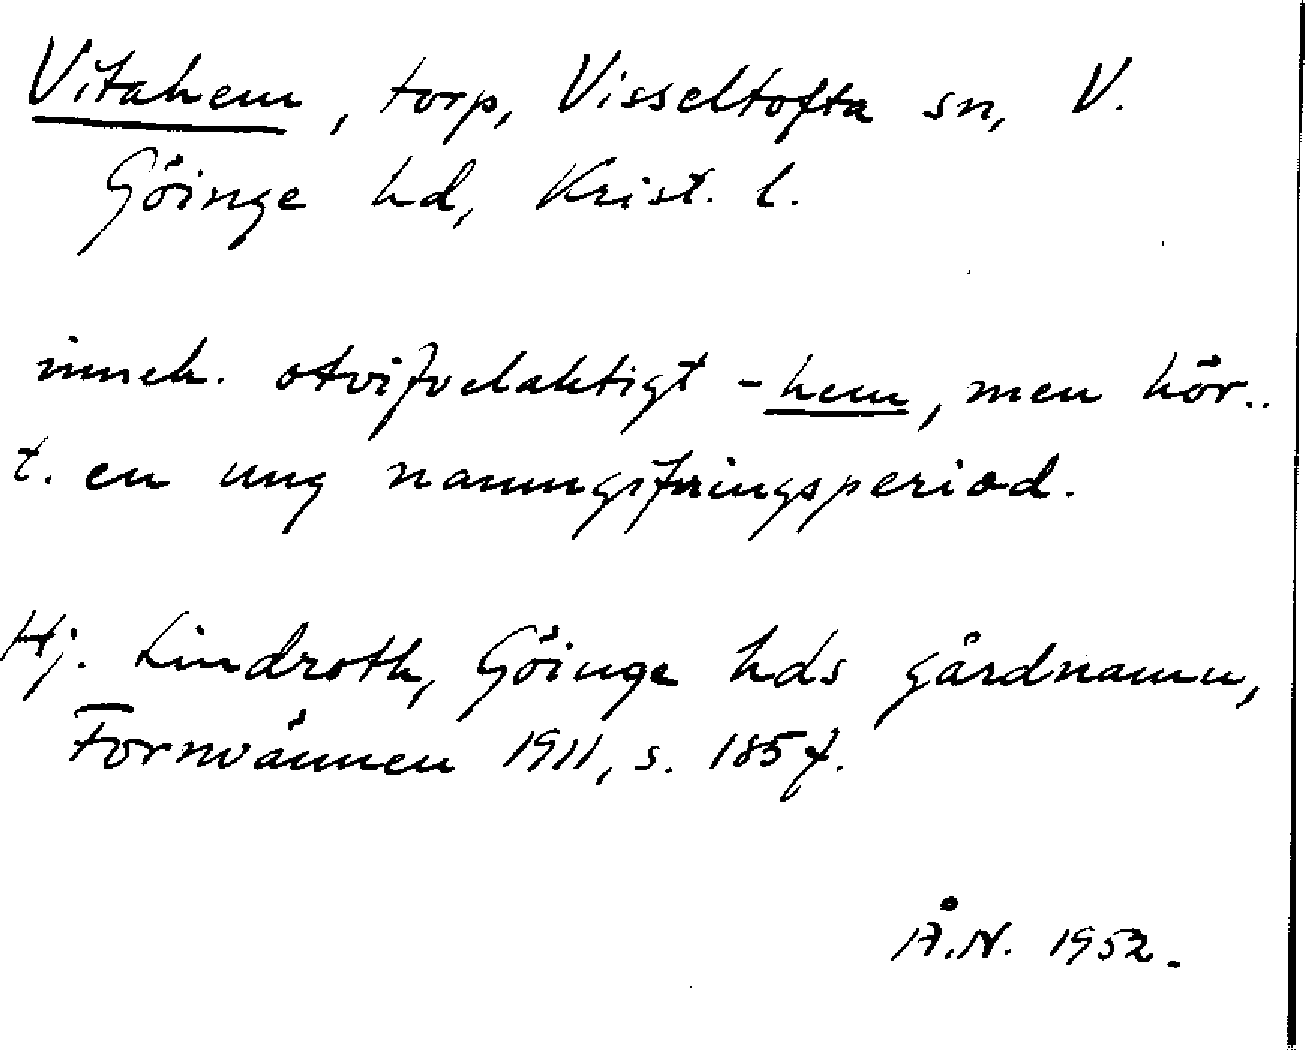 Vitahem, torp, Visseltofta sn, V.
Göinge hd, Krist. l.
inneh. otvifvelaktigt -hem, men hör..
t. en ung namngifningsperiod.
Hj. Lindroth, Göinge hds gårdnamn,
Fornvännen 1911, s. 185 f.
Å.N. 1952.